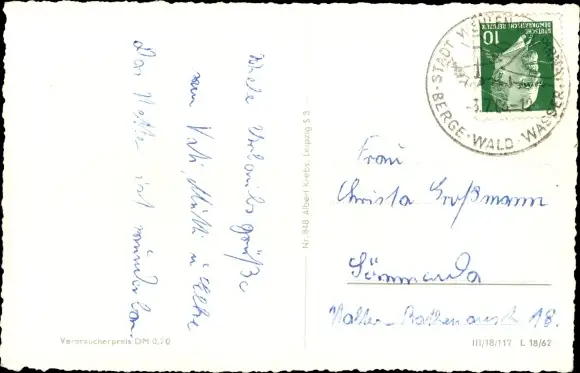 Viele Urlaubsgrüße
von Vati, Mutti u.
Das Wetter ist wunderbar.
Nr. 848 Albert Krebs, Leipzig S 3
Verbraucherpreis DM 0,20
10
DEUTSCHE
DEMOKRATISCHE REPUBLIK
STADT WEHLEN
BERGE · WALD · WASSER
Frau
Christa Großmann
Sömmerda
Walter-Rathenau str. 18.
III/18/117 L 18/62